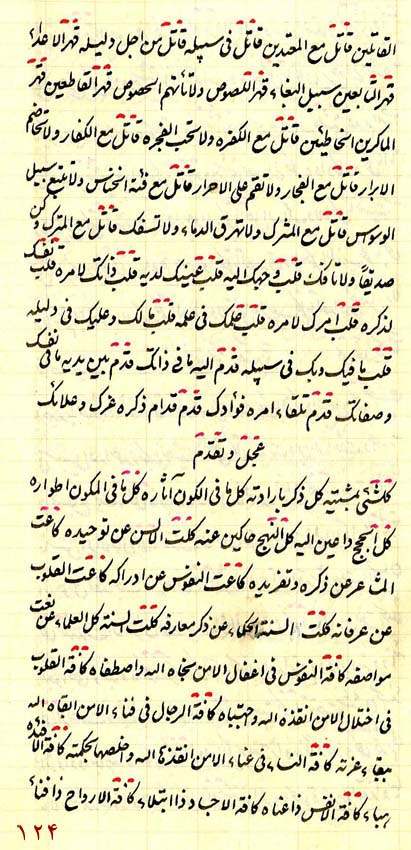 القاتلین قاتل مع المعتدین قاتل فی سبیله قاتل من اجل دلیله قهر الاعداء
قهر التابعین سبیل البغاء قهر اللصوص ولا تأتهم الخصوص قهر القاطعین قهر
الماکرین الخاطئین قاتل مع الکفره ولا تحب الفجره قاتل مع الکفار ولا تخاصم
الابرار قاتل مع الفجار ولا تقم علی الاحرار قاتل مع فئة الخناس ولا تتبع سبیل
الوسواس قاتل مع المشرک ولا تهرق الدماء ولا تسفک قاتل مع المشرک وکن
صدیقا ولا تأفک قلب وجهک الیه قلب عینیک لدیه قلب ذاتک لامره قلب نفسک
لذکره قلب امرک لامره قلب علمک فی علمه قلب مالک وعلیک فی دلیله
قلب ما فیک وبک فی سبیله قدم الیه ما فی ذاتک قدم بین یدیه ما فی نفسک
وصفاتک قدم تلقاء امره فؤادک قدم قدام ذکره عزک وعلائک
عجل و تقدم
کلشئ بمشیته کل ذکر بارادته کل ما فی الکون آثاره کل ما فی المکون اطواره
کل الحجج داعین الیه کل النهج حاکین عنه کلت الالسن عن توحیده کاعت
المشاعر عن ذکره وتفریده کاعت النفوس عن ادراکه کاعت القلوب
عن عرفانه کلت السنة الحکماء عن ذکر معارفه کلت السنة کل العلماء عن نعت
مواصفه کافة النفوس فی اغفال الا من نجاه الله واصطفاه کافة القلوب
فی اختلال الا من انقذه الله واجتباه کافة الرجال فی فناء الا من ابقاه الله
ببقاء عزته کافة النساء فی عناء الا من انقذها الله واخلصها لحکمته کافة الافئده
هباء کافة الانفس ذا عناه کافة الاجساد ذا ابتلاء کافة الارواح ذا فناء
١٢۴